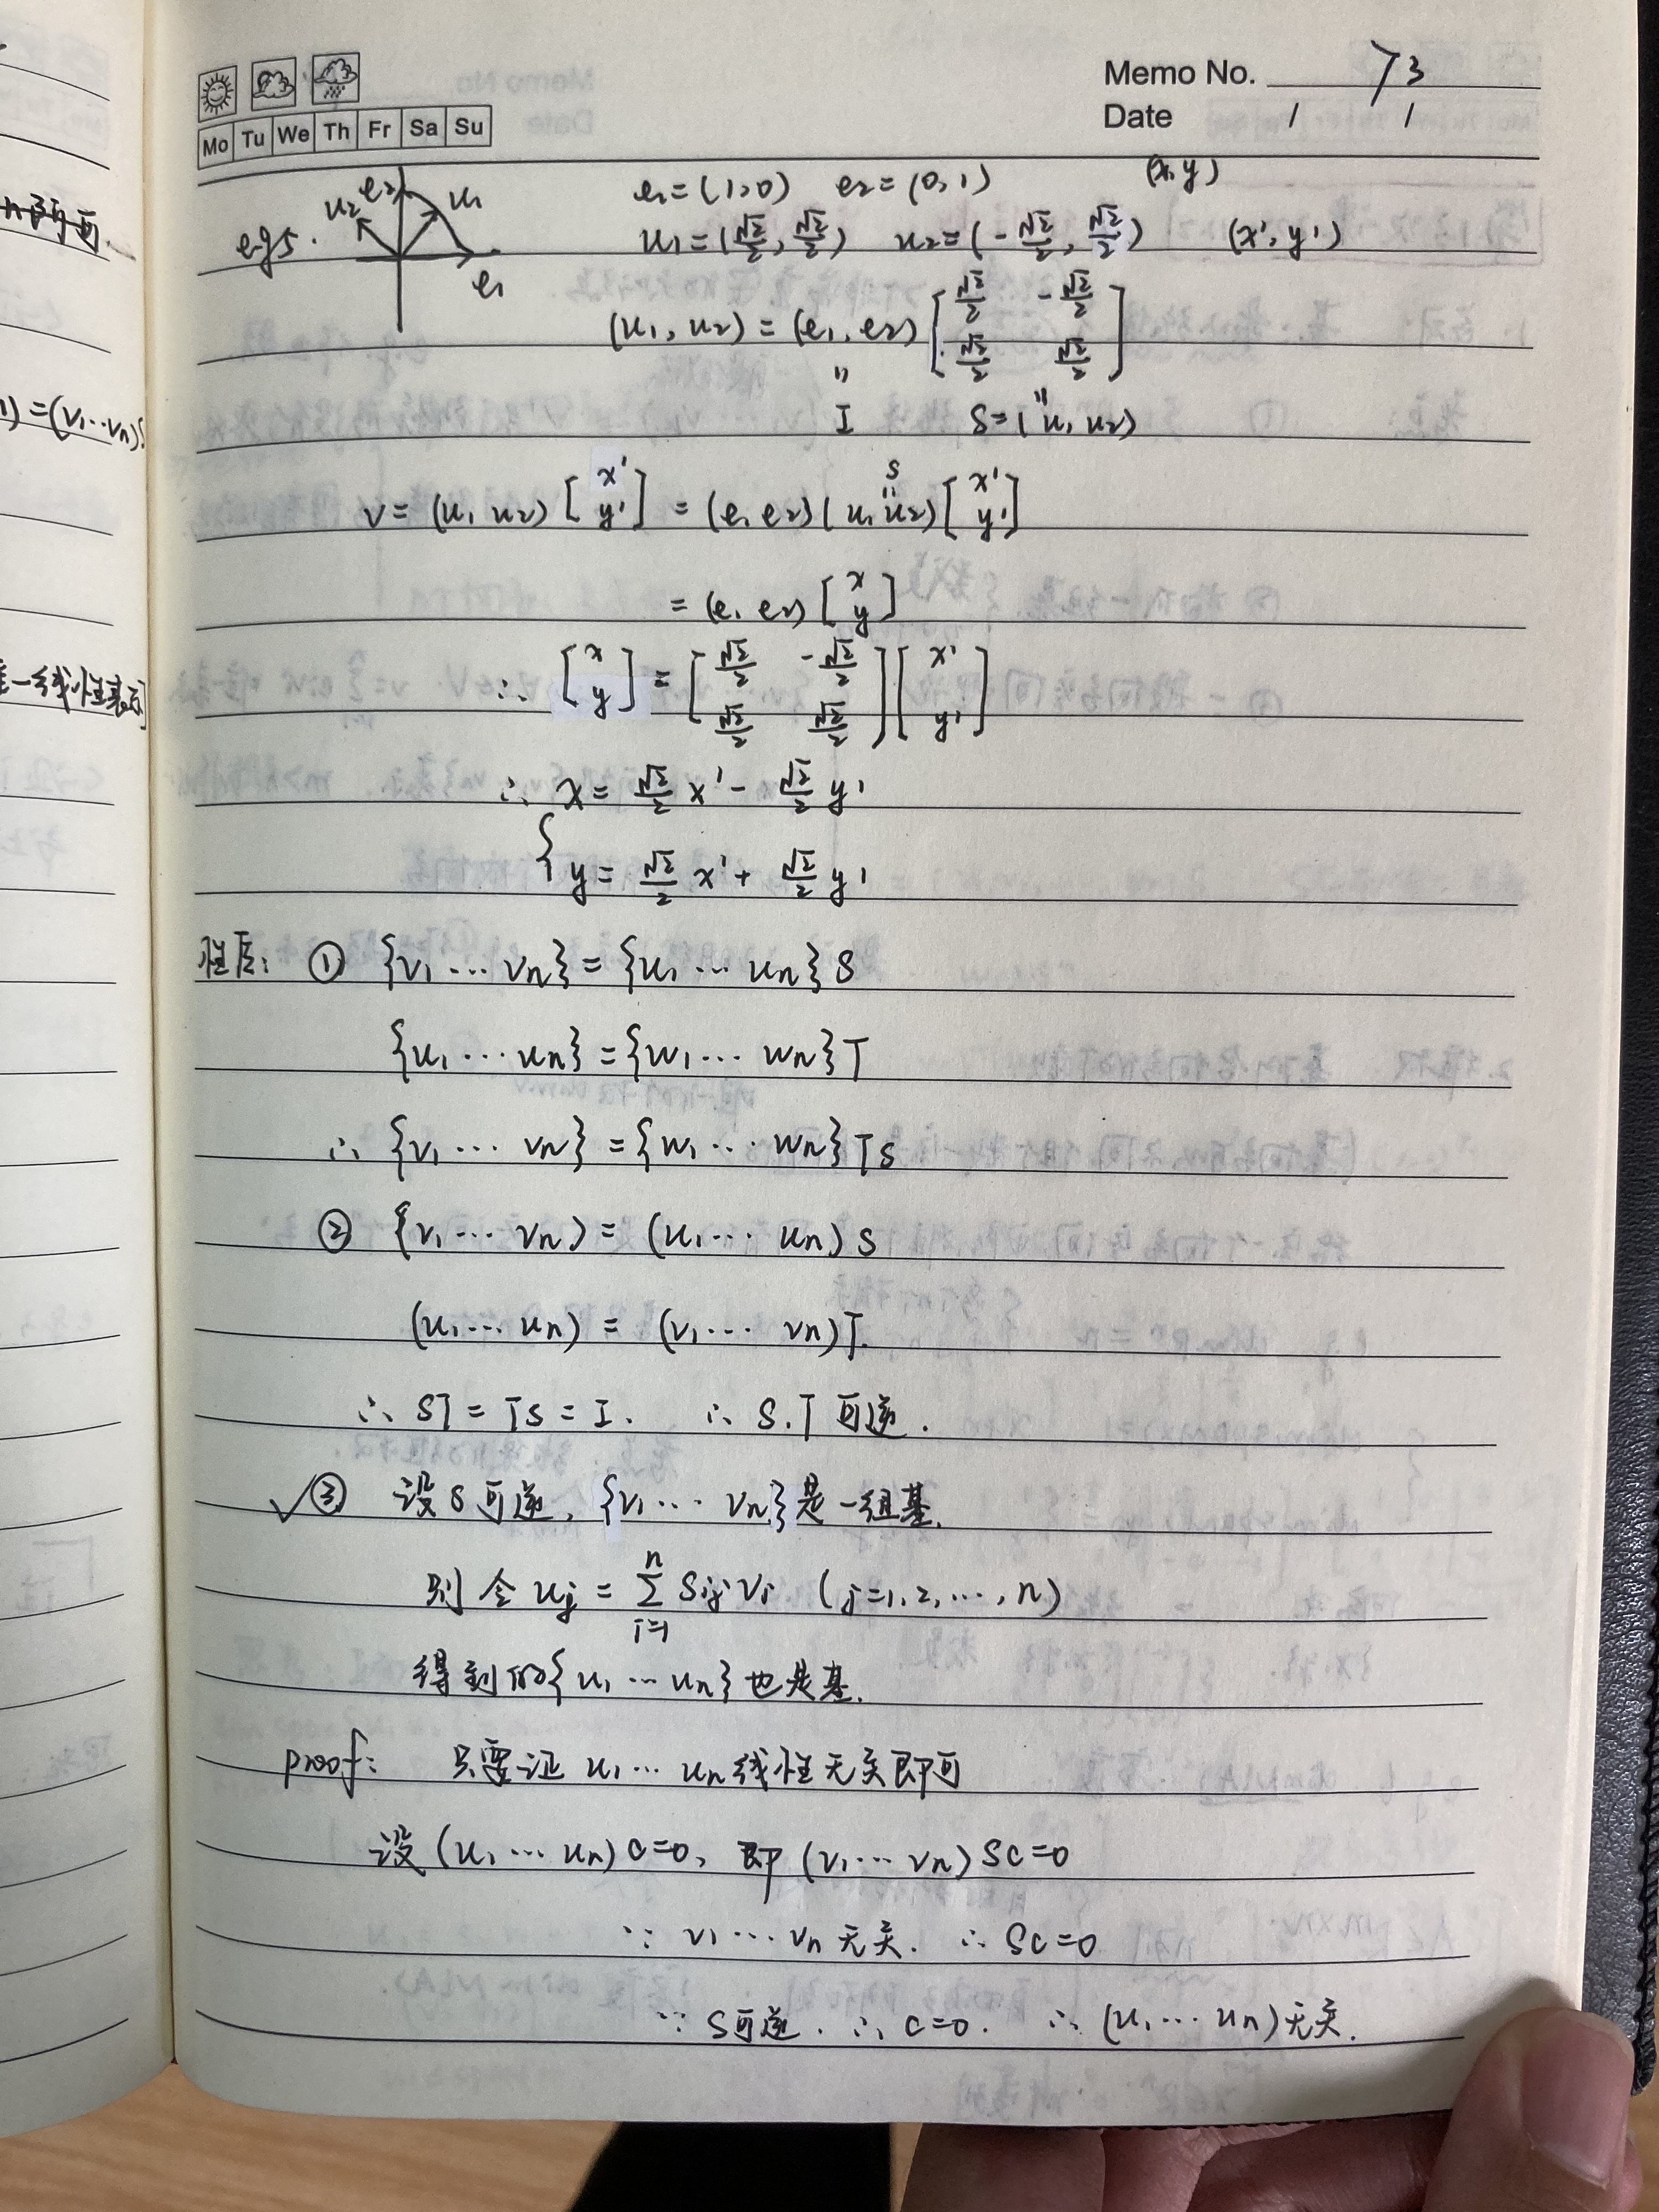 Memo No. 73
Mo Tu We Th Fr Sa Su
Date / /
e₁=(1,0) e₂=(0,1) (x,y)
eg5. u₂ e₂ u₁ e₁
u₁=(√2/2, √2/2) u₂=(-√2/2, √2/2) (x', y')
(u₁, u₂) = (e₁, e₂) [√2/2 -√2/2; √2/2 √2/2]
" "
I S=(u₁ u₂)
v = (u₁ u₂) [x'; y'] = (e₁ e₂)(u₁ u₂) [x'; y']
S "
= (e₁ e₂) [x; y]
∴ [x; y] = [√2/2 -√2/2; √2/2 √2/2] [x'; y']
∴ { x = √2/2 x' - √2/2 y'
y = √2/2 x' + √2/2 y'
性质: ① {v₁ … vₙ} = {u₁ … uₙ} S
{u₁ … uₙ} = {w₁ … wₙ} T
∴ {v₁ … vₙ} = {w₁ … wₙ} TS
② {v₁ … vₙ) = (u₁ … uₙ) S
(u₁ … uₙ) = (v₁ … vₙ) T.
∴ ST = TS = I. ∴ S.T 可逆.
✓③ 设 S 可逆, {v₁ … vₙ} 是一组基.
则令 uⱼ = ∑ⁿᵢ₌₁ Sᵢⱼ vᵢ (j=1,2,…,n)
得到的{u₁ … uₙ}也是基.
proof: 只要证 u₁ … uₙ 线性无关即可
设 (u₁ … uₙ) C=0, 即 (v₁ … vₙ) SC=0
∵ v₁ … vₙ 无关. ∴ SC=0
∵ S可逆. ∴ C=0. ∴ (u₁ … uₙ) 无关.
=(v₁ … vₙ)S
一线性表示